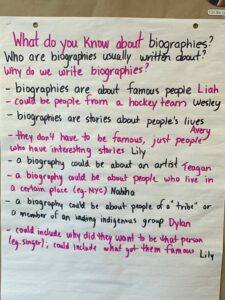 What do you know about biographies?
Who are biographies usually written about?
Why do we write biographies?
- biographies are about famous people Liah
- could be people from a hockey team Wesley
- biographies are stories about people's lives
Avery
- they don't have to be famous, just people
who have interesting stories Lily
- a biography could be about an artist Teagan
- a biography could be about people who live in
a certain place (eg. NYC) Nabha
- a biography could be about people of a "tribe" or
a member of an indigenous group Dylan
- could include why did they want to be that person
(eg. singer), could include what got them famous
Lily